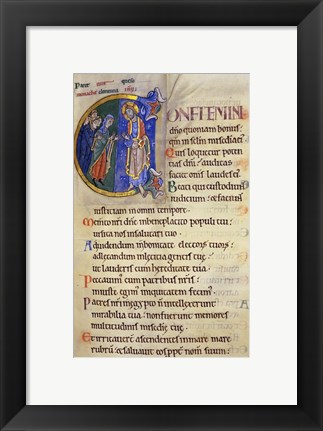 ONFITEMINI
dño quoniam bonus:
qm̄ in sclm̄ misc̄dia ei
Quis loquetur poten
tias dñi: auditas
faciet om̄s laudes ei
Beati qui custodiunt
iudicium: & faciunt
iusticiam in omni tempore.
Memento nr̄i dñe in beneplacito populi tui:
uisita nos in salutari tuo.
Ad uidendum in bonitate electorꝝ tuorꝝ:
ad letandum in leticia gentis tue:
ut lauderis cum hereditate tua.
Peccauim̄ cum patribus nr̄is:
iniuste egim̄ iniquitatem fecim̄
Patres nr̄i in egypto n̄ intellexerunt
mirabilia tua: non fuerunt memores
multitudinis misc̄die tue.
Et irritauerunt ascendentes in mare mare
rubrū: et saluauit eos ꝓpt̄ nomen suum: